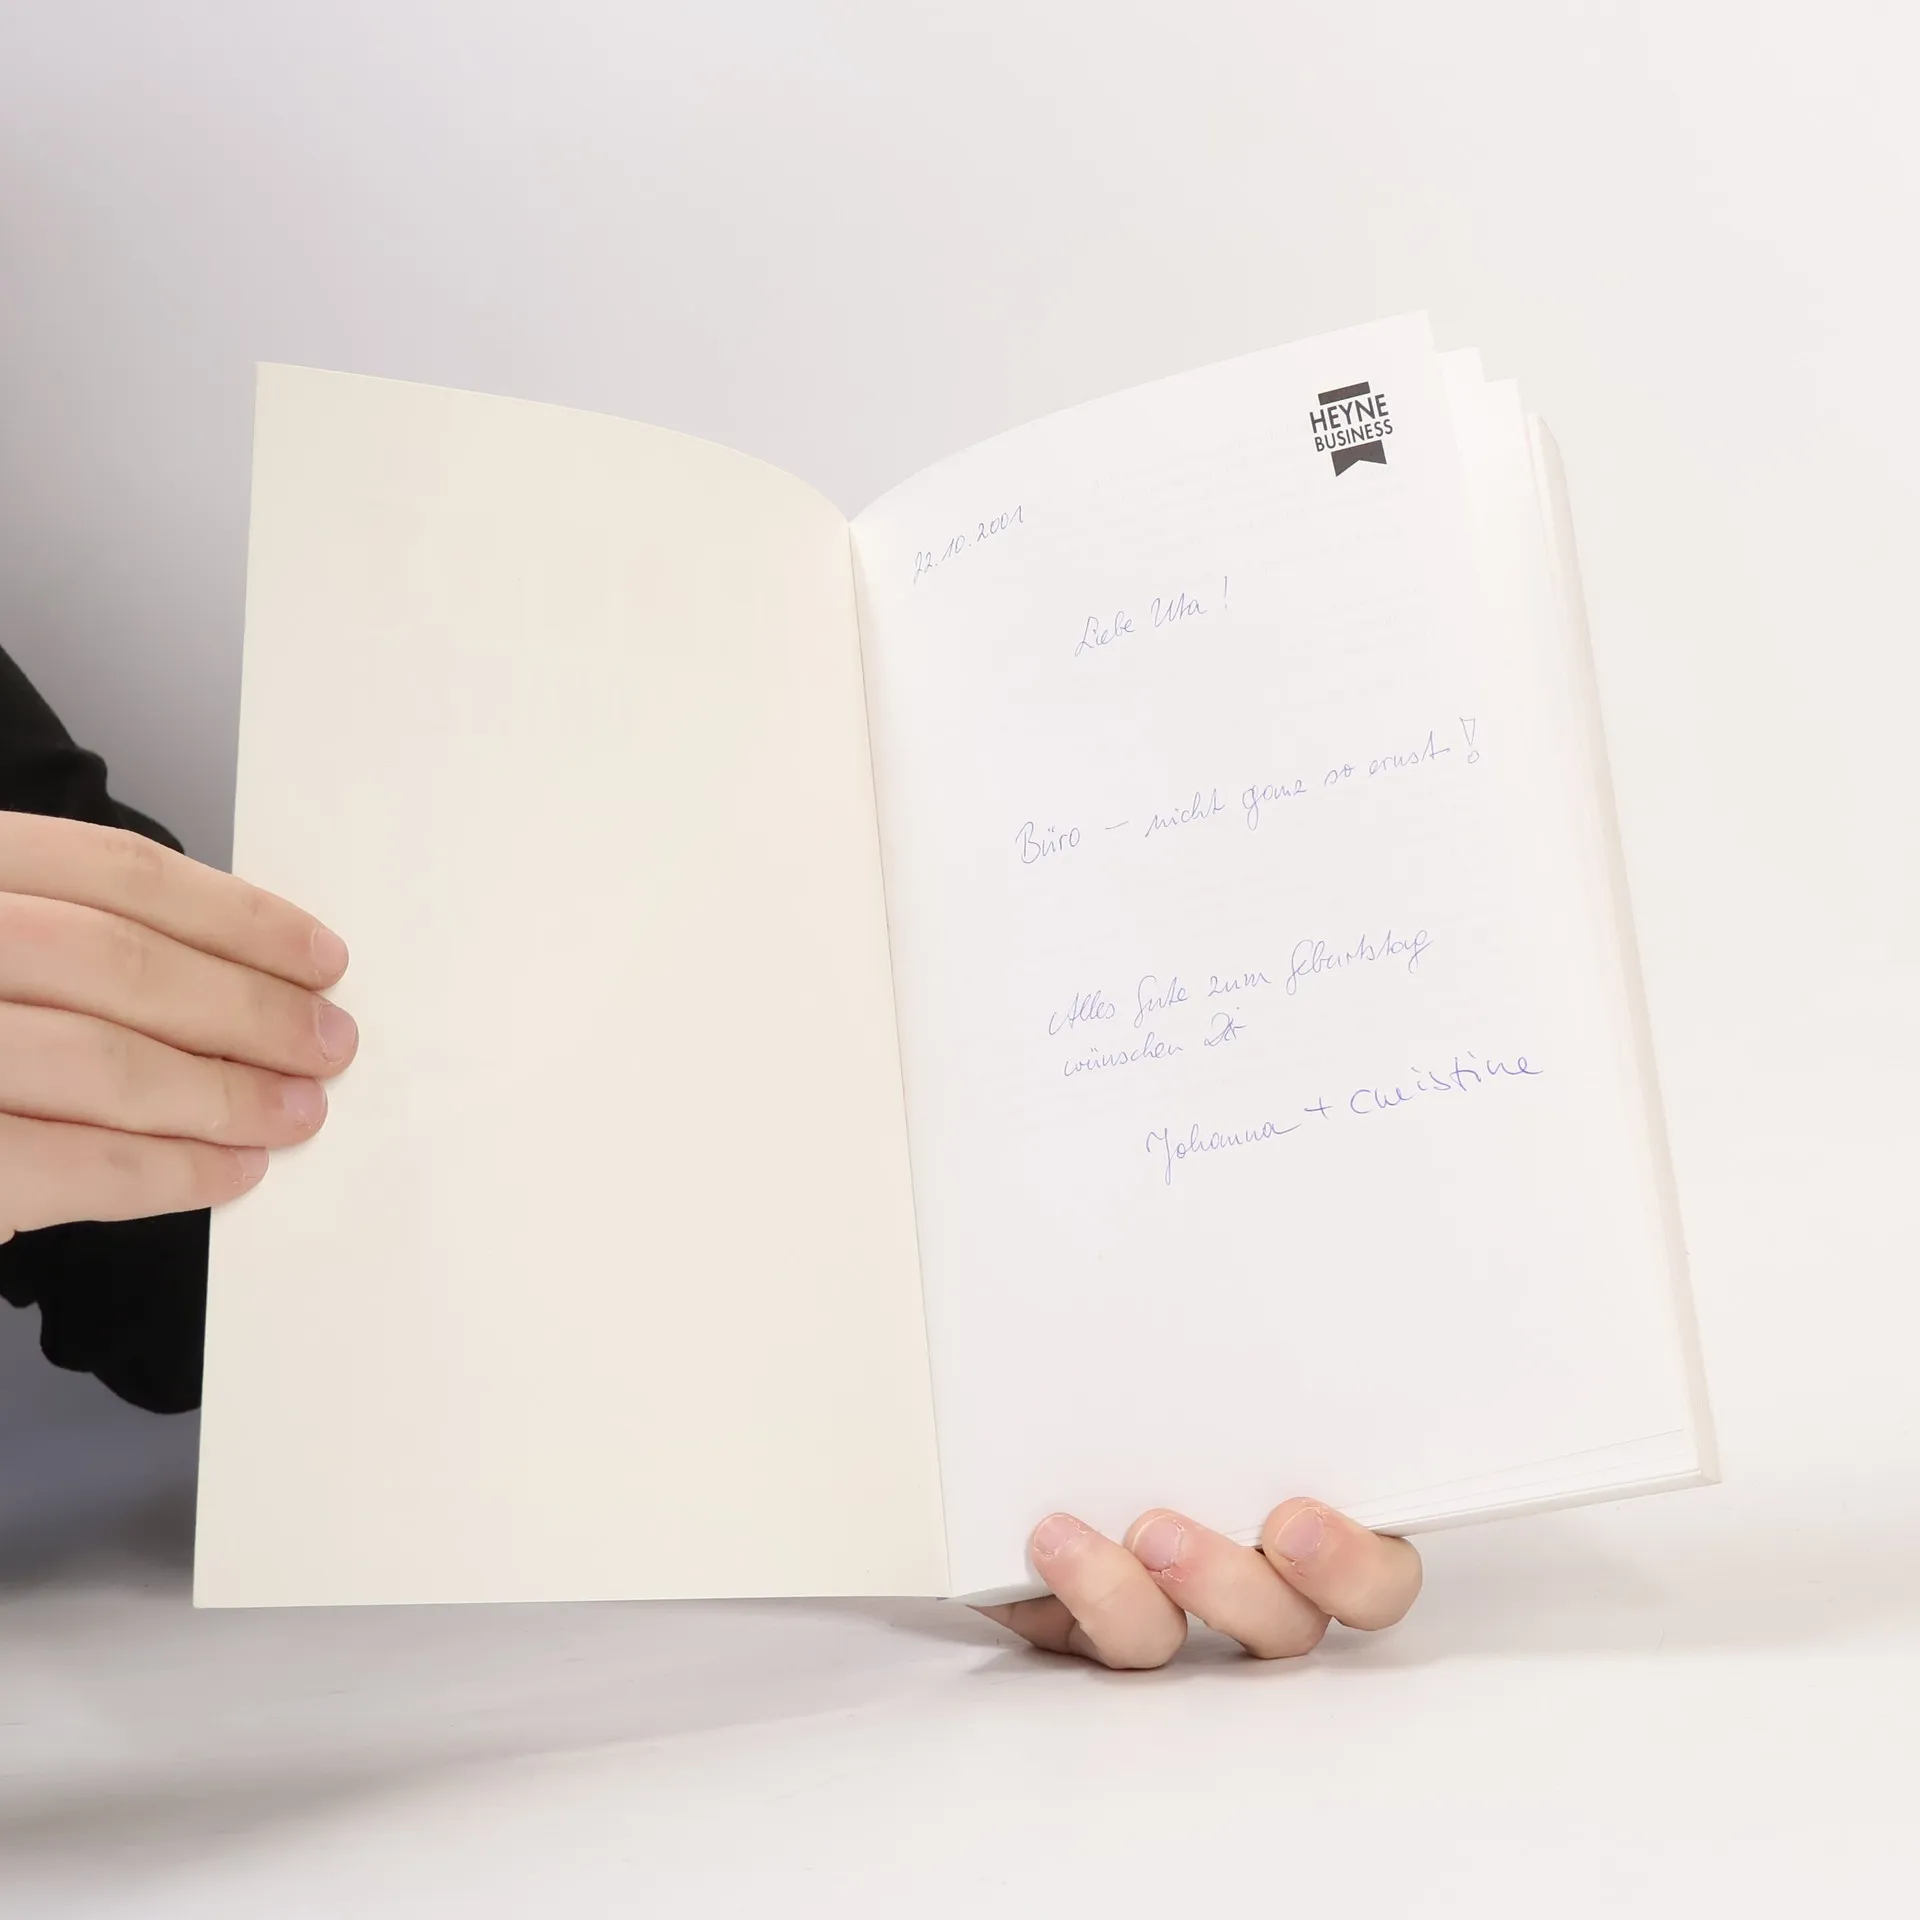 HEYNE
BUSINESS
22.10.2001
Liebe Uta!
Büro – nicht ganz so ernst!
Alles Gute zum Geburtstag
wünschen Dir
Johanna + Christine